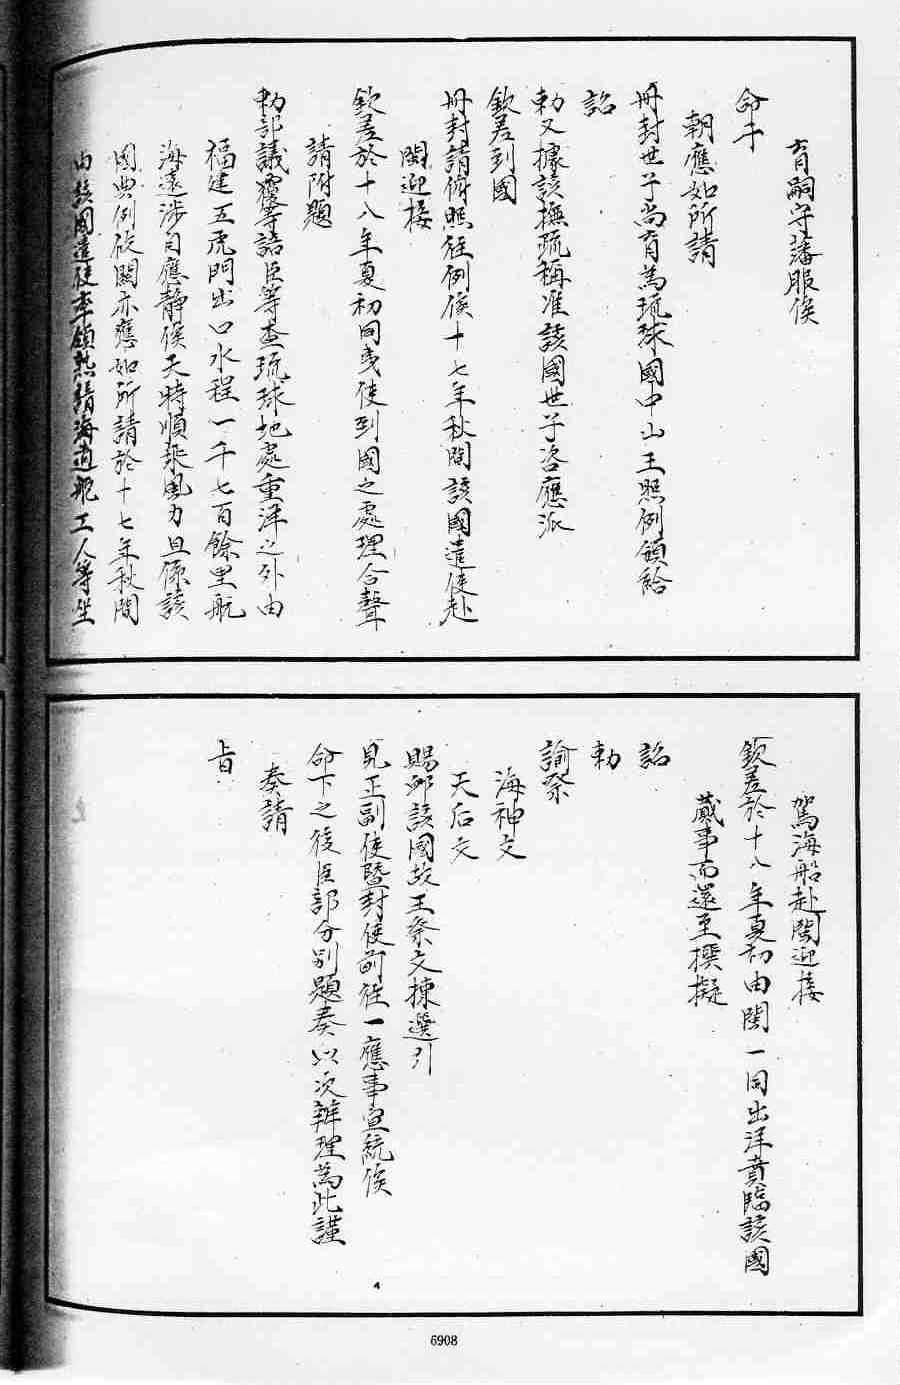 育嗣守藩服俟
命下
朝應如所請
冊封世子尚育為琉球國中山王照例頒給
詔
勅又據該撫疏稱准該國世子咨應派
欽差到國
冊封請俯照往例俟十七年秋間該國遣使赴
閩迎接
欽差於十八年夏初同夷使到國之處理合聲
請附題
勅部議覆等語臣等查琉球地處重洋之外由
福建五虎門出口水程一千七百餘里航
海遠涉自應靜候天時順乘風力且係該
國典例攸關亦應如所請於十七年秋間
由該國遣使率領熟諳海道舵工人等坐
駕海船赴閩迎接
欽差於十八年夏初由閩一同出洋賁臨該國
蕆事而還至撰擬
詔
勅
諭祭
海神文
天后文
賜卹該國故王祭文揀選引
見正副使暨封使前往一應事宜統俟
命下之後臣部分別題奏以次辦理為此謹
奏請
旨
6908